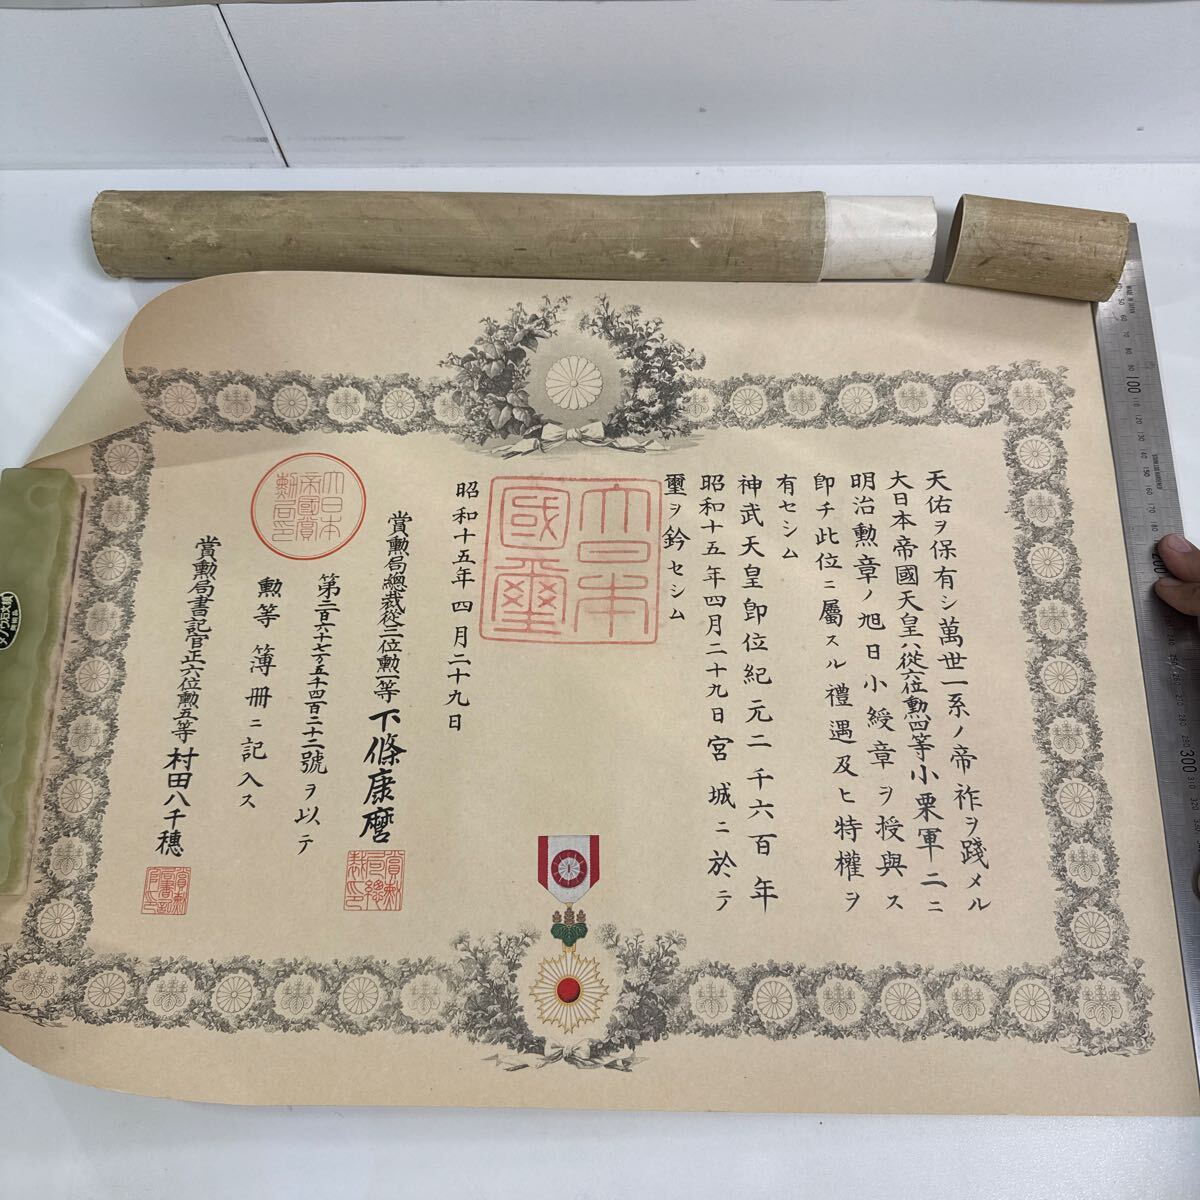 天佑ヲ保有シ萬世一系ノ帝祚ヲ踐メル
大日本帝國天皇ハ從六位勲四等小栗軍二ニ
明治勲章ノ旭日小綬章ヲ授與ス
即チ此位ニ屬スル禮遇及ヒ特權ヲ
有セシム
神武天皇即位紀元二千六百年
昭和十五年四月二十九日宮城ニ於テ
璽ヲ鈐セシム
大日本
國璽
昭和十五年四月二十九日
賞勲局總裁從三位勲一等下條康麿
第三百六十七万五千四百二十二號ヲ以テ
勲等簿冊ニ記入ス
大日本
帝國賞
勲局印
賞勲局書記官正六位勲五等村田八千穗